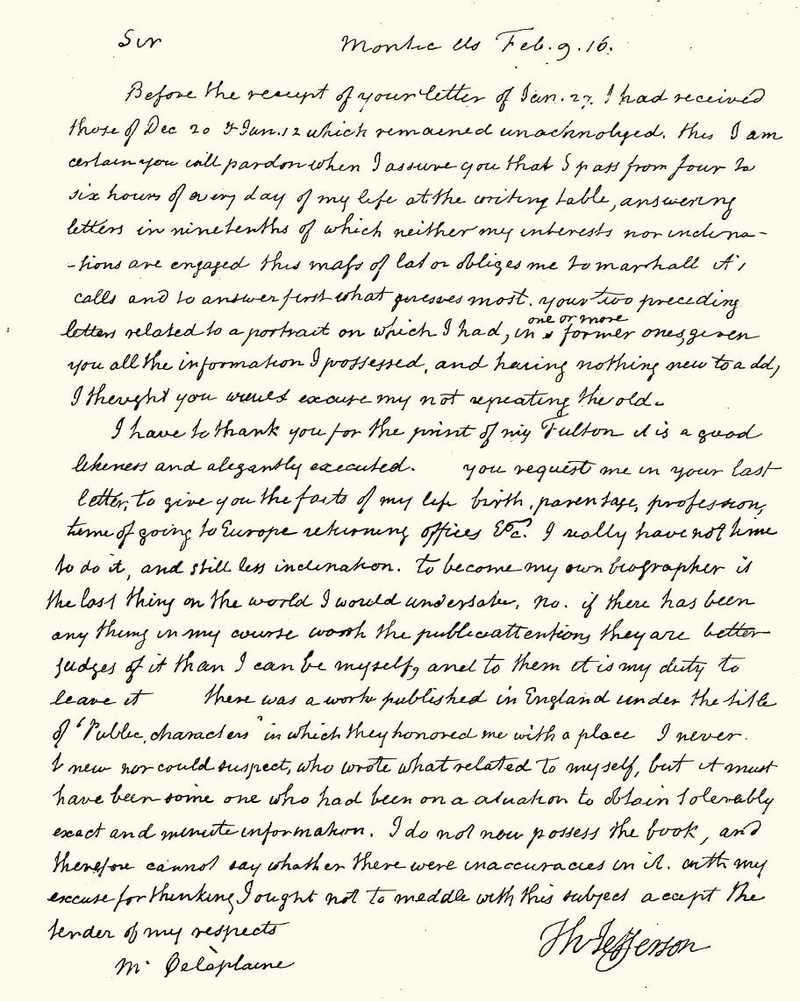 Sir Monticello Feb. 9. 16.
Before the receipt of your letter of Jan. 27. I had received
those of Dec 20 & Jan. 12 which remained unacknolged. this I am
certain you will pardon when I assure you that I pass from four to
six hours of every day of my life at the writing table, answering
letters in ninetenths of which neither my interests nor inclina-
-tions are engaged this mass of labor obliges me to marshall it's
calls and to answer first what presses most. your two preceding
one or more
letters related to a portrait on which I had, in former ones, given
you all the information I possessed, and having nothing new to add,
I thought you would excuse my not repeating the old.
I have to thank you for the print of mr Fulton it is a good
likeness and elegantly executed. you request me in your last
letter, to give you the facts of my life birth, parentage, profession,
time of going to Europe returning offices &c. I really have not time
to do it, and still less inclination. to become my own biographer is
the last thing on the world I would undertake. no. if there has been
any thing in my course worth the public attention, they are better
judges of it than I can be myself, and to them it is my duty to
leave it there was a work published in England under the title
of "Public, characters" in which they honored me with a place I never
knew nor could suspect, who wrote what related to myself, but it must
have been some one who had been on a situation to obtain tolerably
exact and minute information. I do not now possess the book, and
therefore cannot say whether there were inaccuracies in it. with my
excuse for thinking I ought not to meddle with this subject accept the
tender of my respects
Th Jefferson
Mr Delaplaine